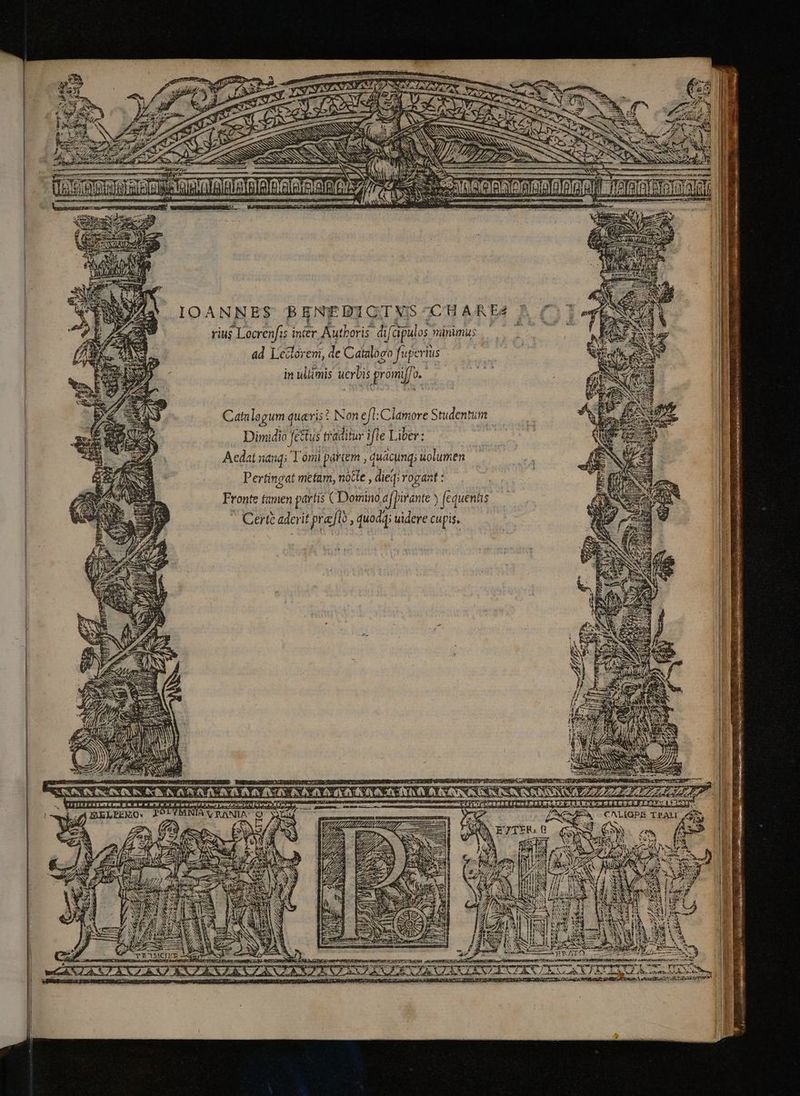 IOANNES BENEDICTVS CHARE
rius Locrensis inter Authoris discipulos minimus
ad Lectorem, de Catalogo superius
in ultimis uerbis promisso.
Catalogum quæris? Non est: Clamore Studentum
Dimidio sectus traditur iste Liber:
Aedat nanq; Tomi partem, quàcunq; uolumen
Pertingat metam, nocte, dieq; rogant:
Fronte tamen partis (Domino aspirante) sequentis
Certè aderit præstò, quodq; uidere cupis.
MELPEMO. POLYMNIA VRANIA CLIO
EVTER.
CALIOPE TEALI
TERSICHE
P
ERATO